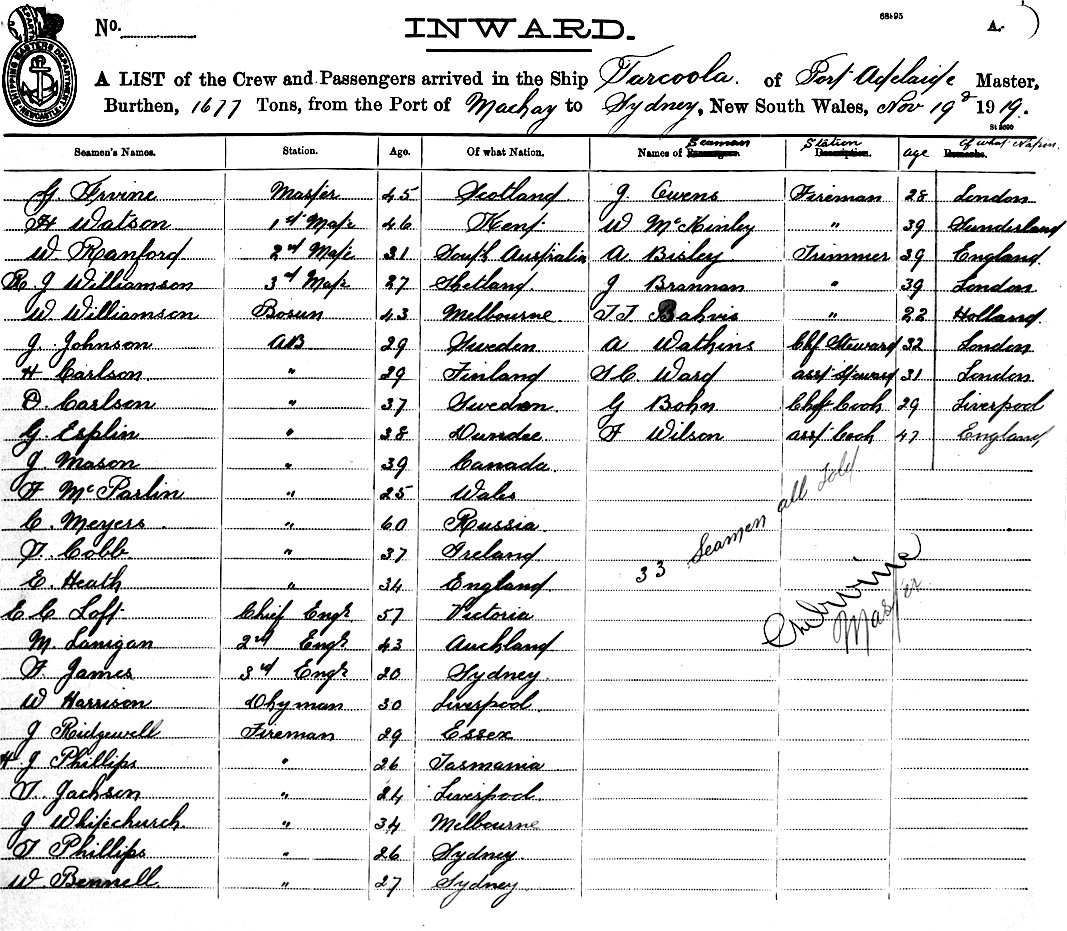 68495
No. INWARD. A.
A LIST of the Crew and Passengers arrived in the Ship Tarcoola. of Port Adelaide Master,
Burthen, 1677 Tons, from the Port of Mackay to Sydney, New South Wales, Nov 19th 1919.
St 5690
Seamen's Names. Station. Age. Of what Nation. Names of Seaman Station age Of what Nation.
G. Irvine Master 45 Scotland J Owens Fireman 28 London
H Watson 1st Mate 46 Kent W McKinley " 39 Sunderland
W Ranford 2nd Mate 31 South Australia A Bisley Trimmer 39 England.
R. J Williamson 3rd Mate 27 Shetland. J Brannan " 39 London
W Williamson Bosun 43 Melbourne T.T. Bahvis " 22 Holland.
J. Johnson AB 29 Sweden A Watkins Chf Steward 32 London
H Carlson " 29 Finland S.C. Ward asst Steward 31 London
O Carlson " 37 Sweden G Bohn Chf Cook 29 Liverpool
G. Esplin " 38 Dundee F Wilson asst Cook 47 England
J. Mason " 39 Canada
F McParlin " 25 Wales
C. Meyers " 60 Russia
T. Cobb " 37 Ireland
E. Heath " 34 England
33 Seamen all Told
E C Loft Chief Engr. 57 Victoria
M. Lanigan 2nd Engr 43 Auckland
Irvine
Master
F. James 3rd Engr 20 Sydney.
W Harrison Dkyman 30 Liverpool.
J Ridgewell Fireman 29 Essex
H J Phillips " 26 Tasmania
T. Jackson " 24 Liverpool.
J Whitechurch. " 34 Melbourne
T Phillips " 26 Sydney.
W Bennell. " 27 Sydney